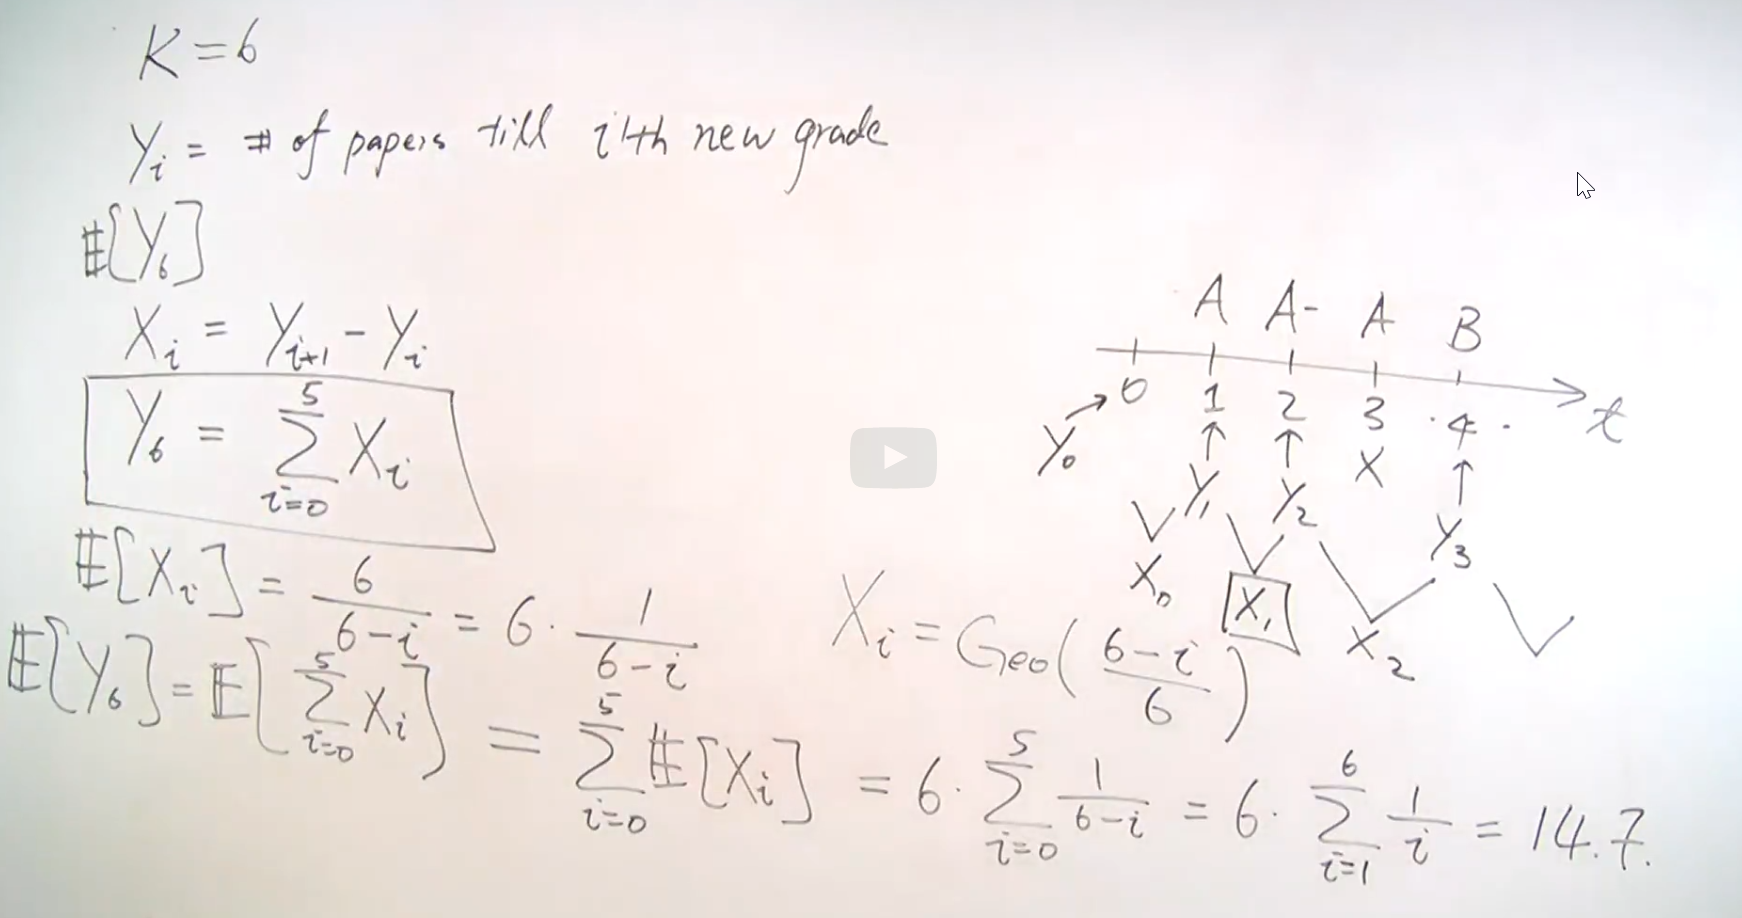 K = 6
Y_i = # of papers till i'th new grade
𝔼[Y_6]
X_i = Y_{i+1} - Y_i
Y_6 = \sum_{i=0}^{5} X_i
𝔼[X_i] = \frac{6}{6-i} = 6 · \frac{1}{6-i}
X_i = Geo(\frac{6-i}{6})
𝔼[Y_6] = 𝔼[\sum_{i=0}^{5} X_i] = \sum_{i=0}^{5} 𝔼[X_i] = 6 · \sum_{i=0}^{5} \frac{1}{6-i} = 6 · \sum_{i=1}^{6} \frac{1}{i} = 14.7.
A A- A B
0 1 2 3 · 4 · t
Y_0 Y_1 Y_2 X Y_3
X_0 X_1 X_2